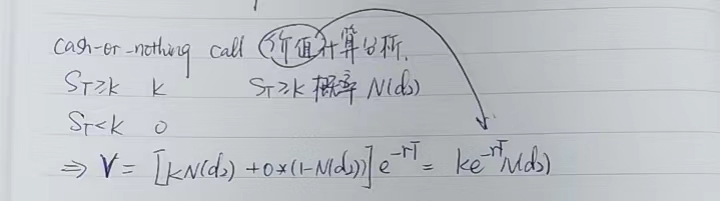 cash-or-nothing call 价值计算分析.
S_T≥k k S_T≥k 概率 N(d₂)
S_T<k 0
⇒ V = [kN(d₂) + 0*(1-N(d₂))] e^{-rT} = ke^{-rT}N(d₂)